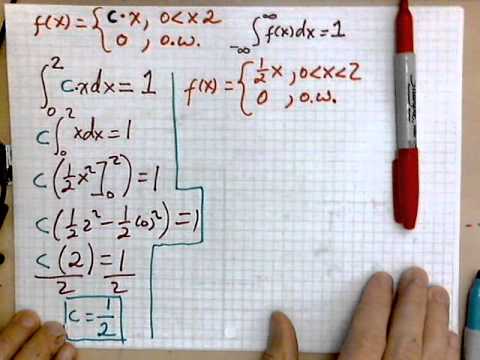 f(x) = { c·x, 0<x 2
0 , o.w.
∫_{-∞}^{∞} f(x)dx = 1
∫_0^2 c·xdx = 1
c ∫_0^2 xdx = 1
c (½x²]_0^2) = 1
c (½2² - ½(0)²) = 1
c (2) = 1
2 2
c = ½
f(x) = { ½x , 0<x<2
0 , o.w.